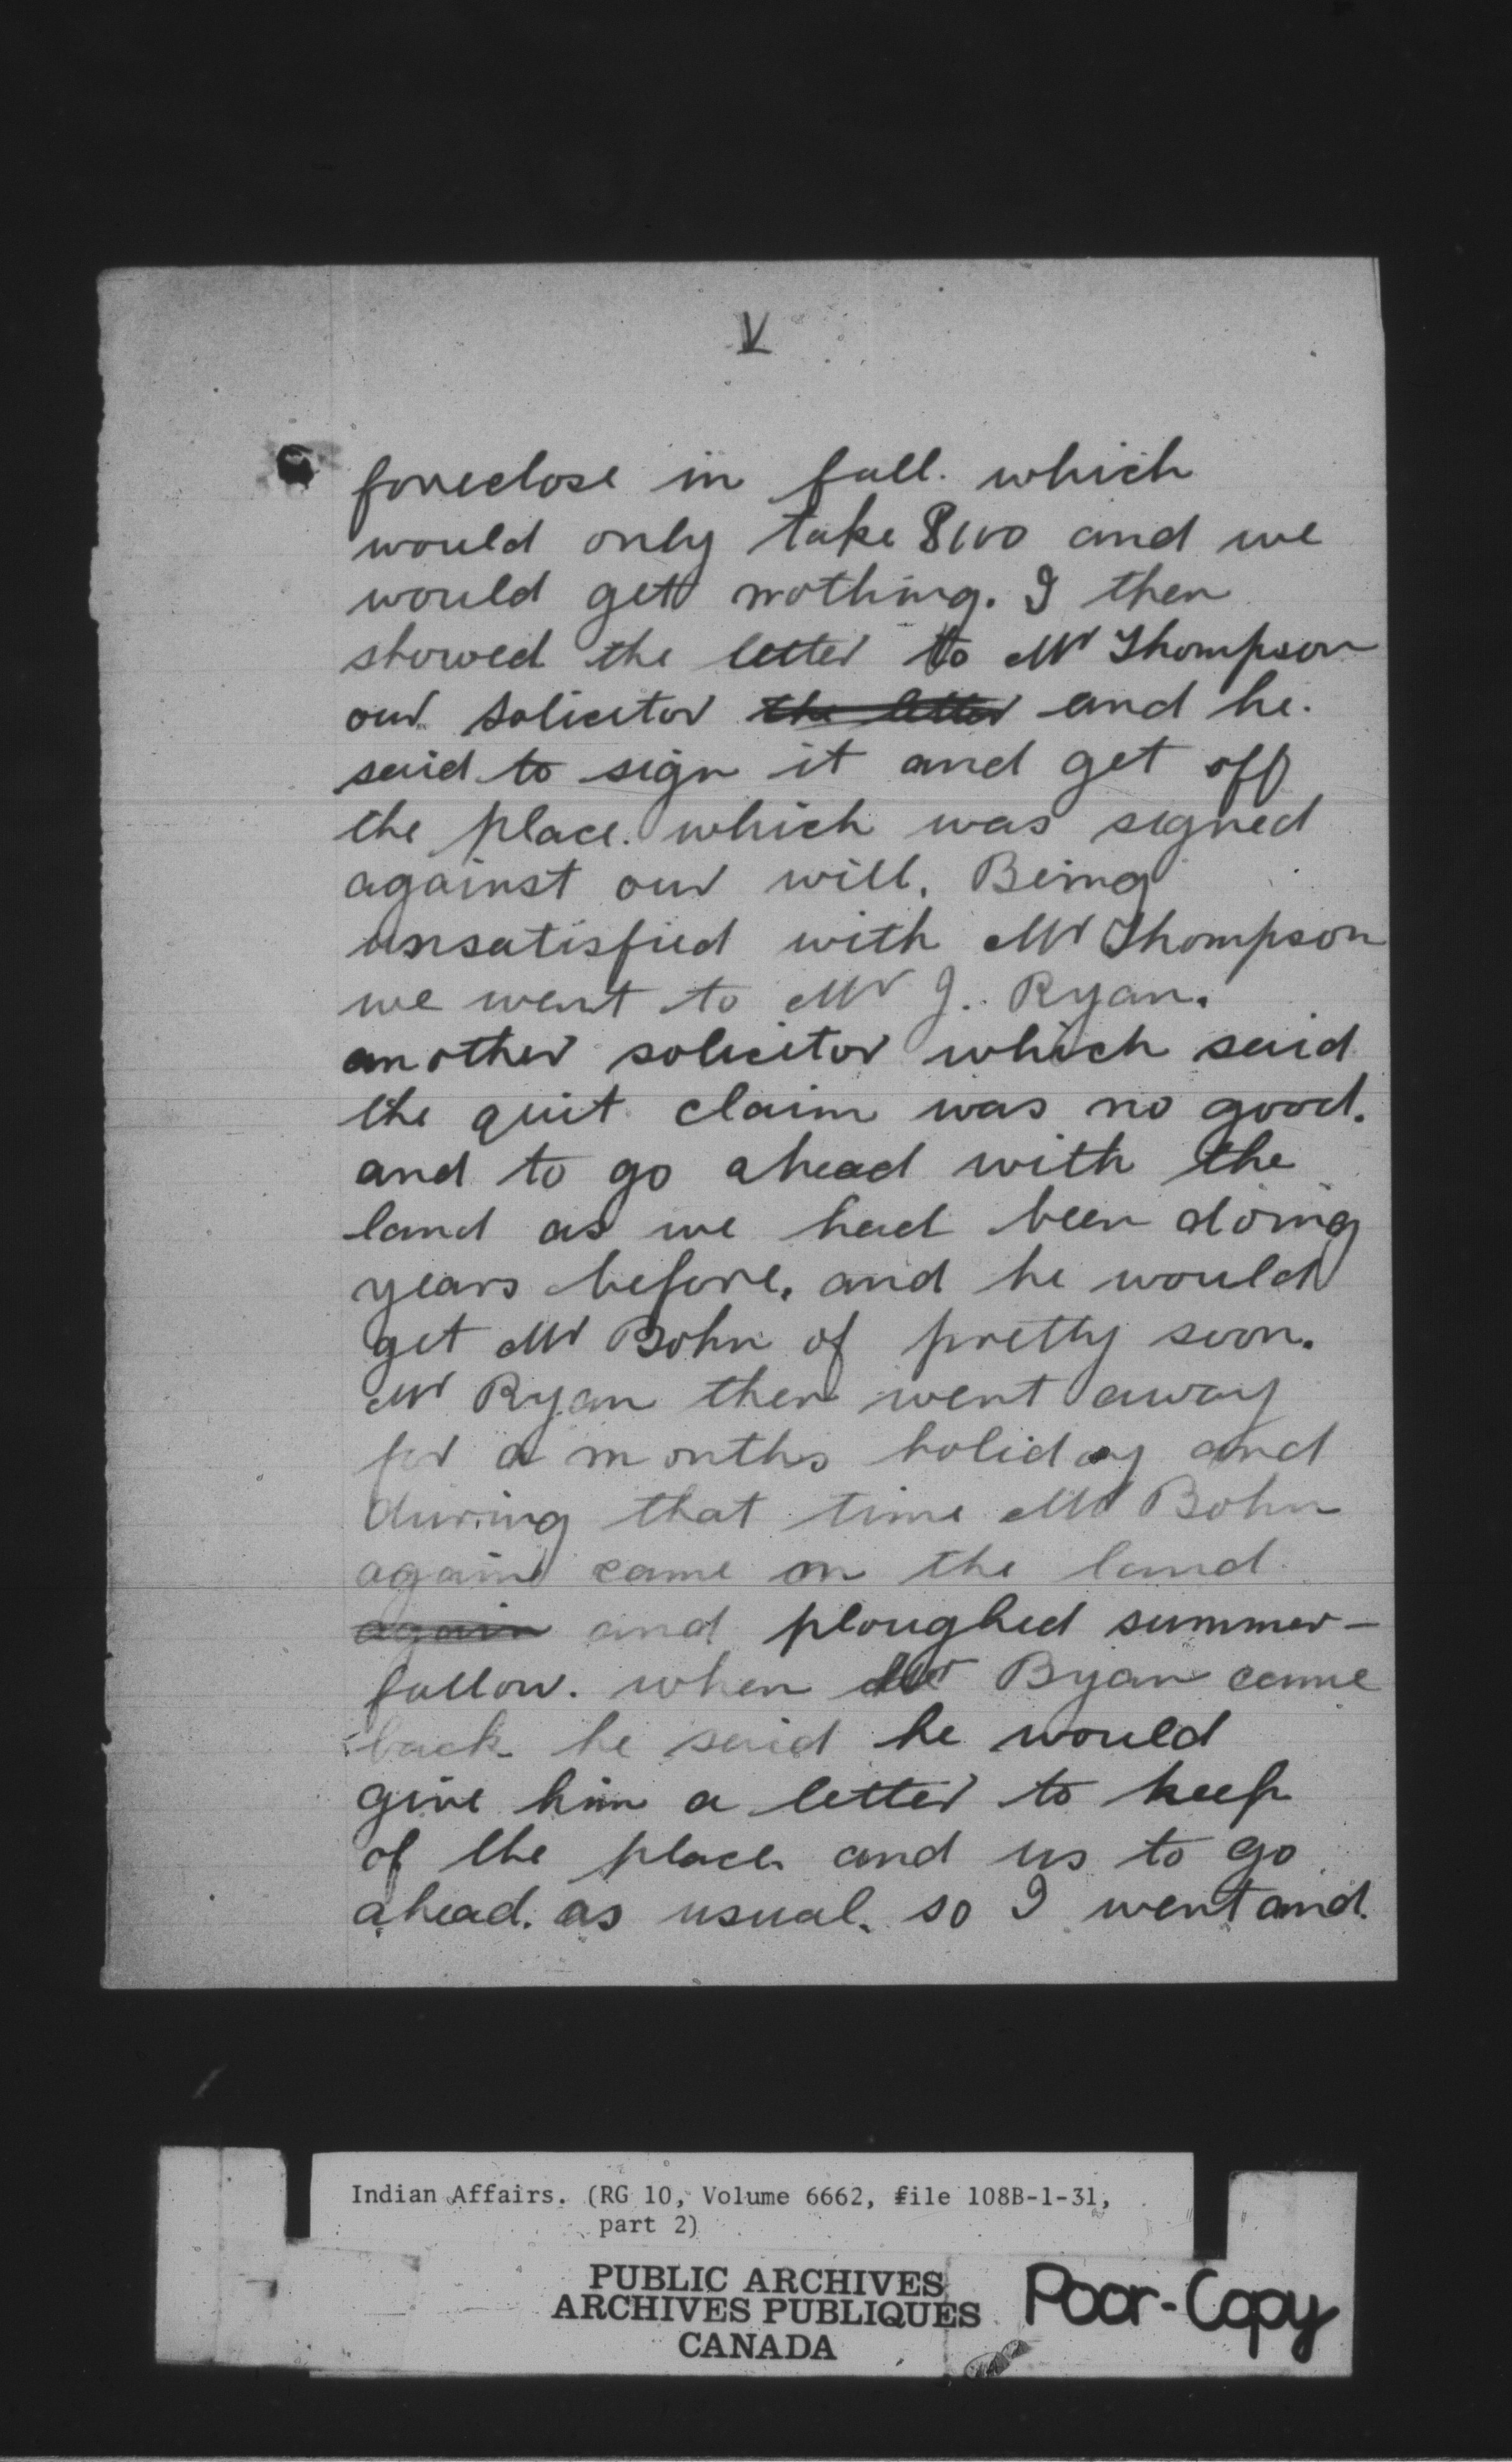 V
foreclose in fall. which
would only take $100 and we
would get nothing. I then
showed the letter to Mr Thompson
our solicitor the letter and he.
said to sign it and get off
the place. which was signed
against our will. Being
unsatisfied with Mr Thompson
we went to Mr J. Ryan.
another solicitor which said
the quit claim was no good.
and to go ahead with the
land as we had been doing
years before. and he would
get Mr Bohn of pretty soon.
Mr Ryan then went away
for a months holiday and
during that time Mr Bohn
again came on the land
again and ploughed summer-
fallow. when Mr Ryan came
back he said he would
give him a letter to keep
of the place and us to go
ahead. as usual. so I went and.
Indian Affairs. (RG 10, Volume 6662, file 108B-1-31,
part 2)
PUBLIC ARCHIVES
ARCHIVES PUBLIQUES
CANADA
Poor-Copy